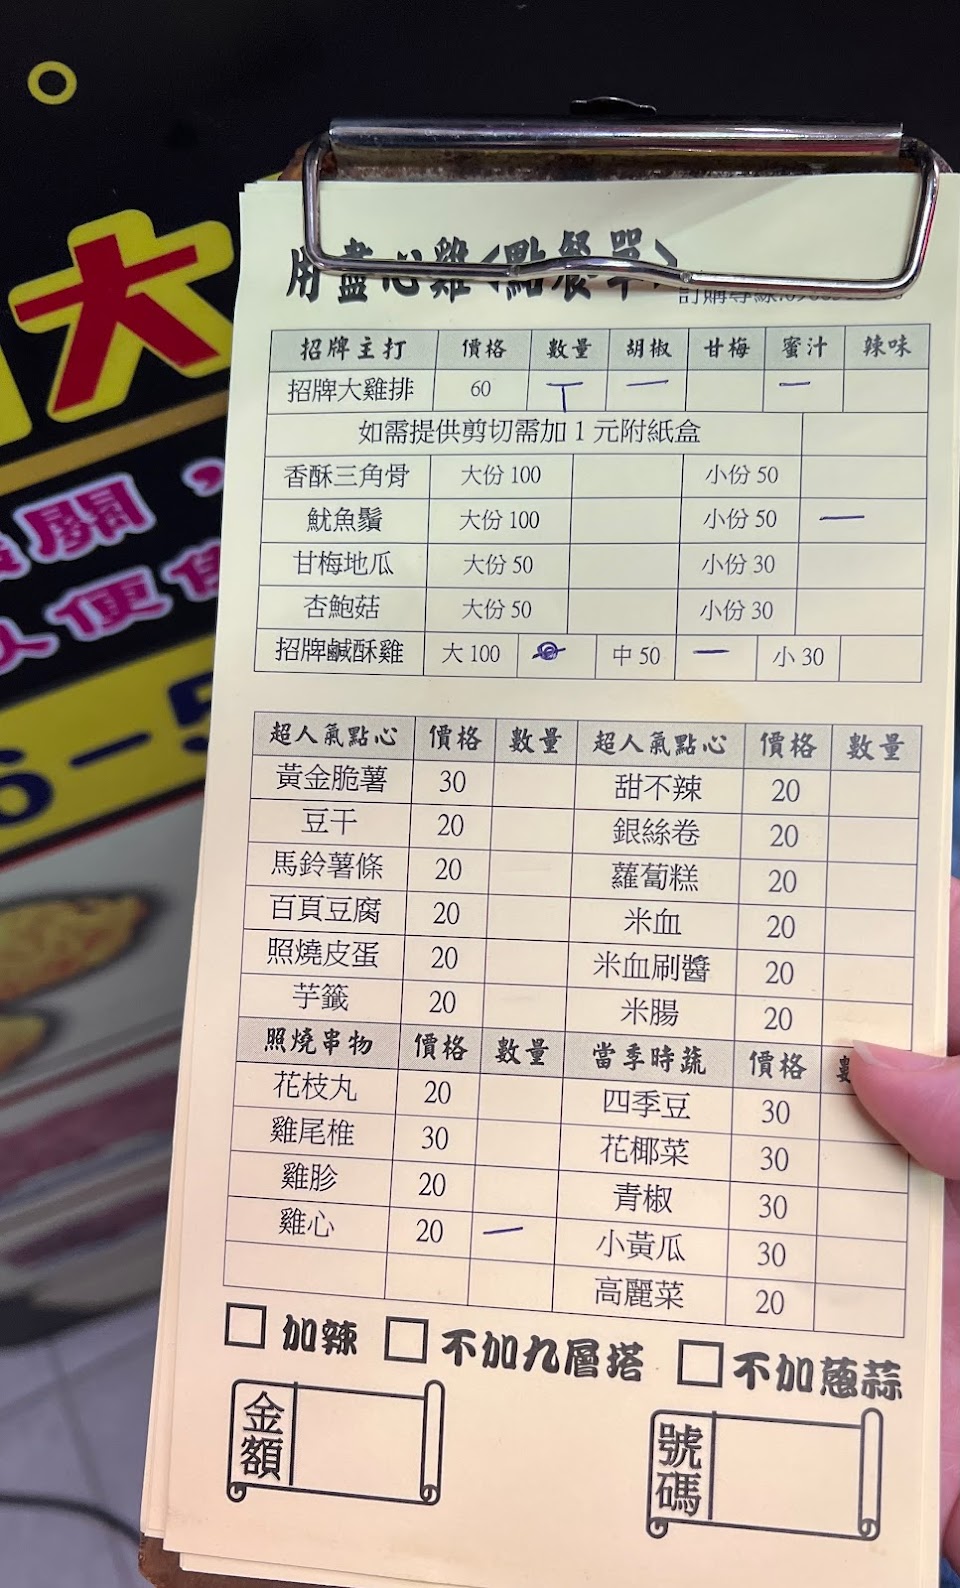 大
用盡心雞<點餐單>
招牌主打 價格 數量 胡椒 甘梅 蜜汁 辣味
招牌大雞排 60 丅 一 一
如需提供剪切需加1元附紙盒
香酥三角骨 大份 100 小份 50
魷魚鬚 大份 100 小份 50 一
甘梅地瓜 大份 50 小份 30
杏鮑菇 大份 50 小份 30
招牌鹹酥雞 大 100 中 50 一 小 30
超人氣點心 價格 數量 超人氣點心 價格 數量
黃金脆薯 30 甜不辣 20
豆干 20 銀絲卷 20
馬鈴薯條 20 蘿蔔糕 20
百頁豆腐 20 米血 20
照燒皮蛋 20 米血刷醬 20
芋籤 20 米腸 20
照燒串物 價格 數量 當季時蔬 價格
花枝丸 20 四季豆 30
雞尾椎 30 花椰菜 30
雞胗 20 青椒 30
雞心 20 一 小黃瓜 30
高麗菜 20
加辣 不加九層塔 不加蔥蒜
金額 號碼